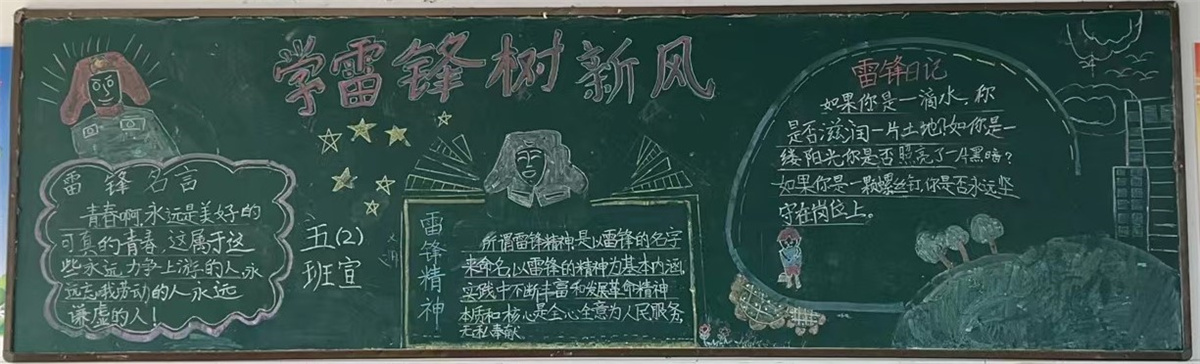 学雷锋树新风
雷锋名言
青春啊,永远是美好的
可真的青春,这属于这
些永远力争上游的人,永
远忘我劳动的人永远
谦虚的人!
五(2)
班宣
雷锋精神
所谓雷锋精神是以雷锋的名字
来命名,以雷锋的精神为基本内涵,
实践中不断丰富和发展革命精神
本质和核心是全心全意为人民服务,
无私奉献
雷锋日记
如果你是一滴水,你
是否滋润一片土地?如你是一
缕阳光你是否照亮了一片黑暗?
如果你是一颗螺丝钉,你是否永远坚
守在岗位上。